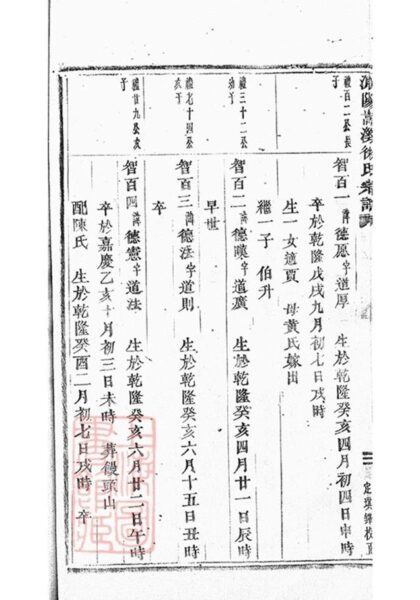 陽嵩溪徐氏宗譜
禮百二公長子
智百一 諱德愿字道厚 生於乾隆癸亥四月初四日申時
卒於乾隆戊戌九月初七日戌時
生一女適賈 母黃氏嫁出
禮三十二公幼子
智百二 諱德暵字道廣 生於乾隆癸亥四月廿一日辰時
繼一子 伯升
早世
禮七十四公次子
智百三 諱德法字道則 生於乾隆癸亥六月十五日丑時
卒
禮廿九公次子
智百四 諱德憲字道法 生於乾隆癸亥六月廿二日午時
卒於嘉慶乙亥十月初三日未時 葬饅頭山
配陳氏 生於乾隆癸酉二月初七日戌時 卒